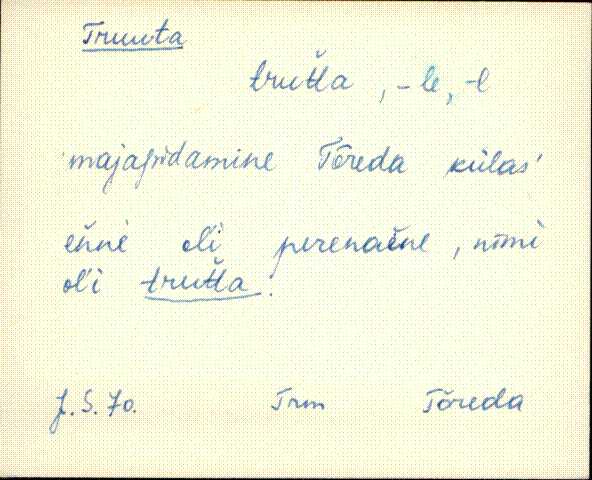 Truuta
trut̆t̆a, -le, -l
'majapidamine Tõreda külas'
en̆nè ol̆i perenaĕne, nīmi
ol̆i trut̆t̆a.
J. S. 70. Trm Tõreda